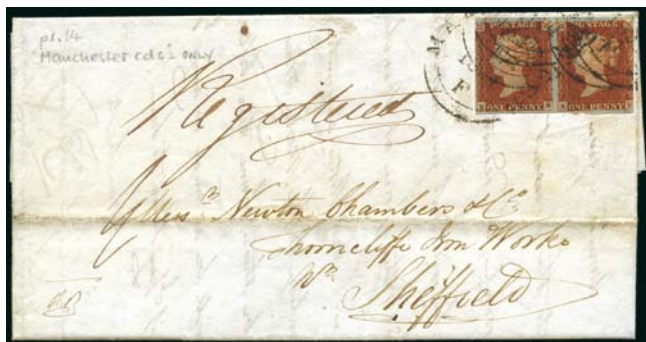 pl.14
Manchester cds's ONLY
POSTAGE POSTAGE
MA
ONE PENNY ONE PENNY
Registered
Mess.rs Newton Chambers & Co.
Thorncliffe Iron Works
Nr.
Sheffield